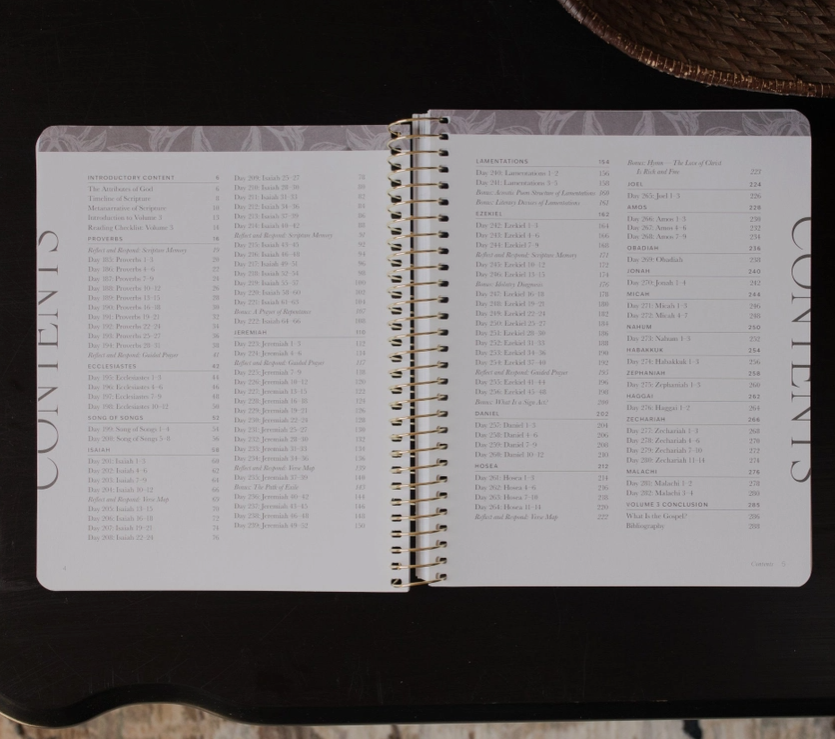 CONTENTS
INTRODUCTORY CONTENT 6
The Attributes of God 6
Timeline of Scripture 8
Metanarrative of Scripture 10
Introduction to Volume 3 13
Reading Checklist: Volume 3 14
PROVERBS 18
Reflect and Respond: Scripture Memory 19
Day 185: Proverbs 1–3 20
Day 186: Proverbs 4–6 22
Day 187: Proverbs 7–9 24
Day 188: Proverbs 10–12 26
Day 189: Proverbs 13–15 28
Day 190: Proverbs 16–18 30
Day 191: Proverbs 19–21 32
Day 192: Proverbs 22–24 34
Day 193: Proverbs 25–27 36
Day 194: Proverbs 28–31 38
Reflect and Respond: Guided Prayer 41
ECCLESIASTES 42
Day 195: Ecclesiastes 1–3 44
Day 196: Ecclesiastes 4–6 46
Day 197: Ecclesiastes 7–9 48
Day 198: Ecclesiastes 10–12 50
SONG OF SONGS 52
Day 199: Song of Songs 1–4 54
Day 200: Song of Songs 5–8 56
ISAIAH 58
Day 201: Isaiah 1–3 60
Day 202: Isaiah 4–6 62
Day 203: Isaiah 7–9 64
Day 204: Isaiah 10–12 66
Reflect and Respond: Verse Map 69
Day 205: Isaiah 13–15 70
Day 206: Isaiah 16–18 72
Day 207: Isaiah 19–21 74
Day 208: Isaiah 22–24 76
Day 209: Isaiah 25–27 78
Day 210: Isaiah 28–30 80
Day 211: Isaiah 31–33 82
Day 212: Isaiah 34–36 84
Day 213: Isaiah 37–39 86
Day 214: Isaiah 40–42 88
Reflect and Respond: Scripture Memory 91
Day 215: Isaiah 43–45 92
Day 216: Isaiah 46–48 94
Day 217: Isaiah 49–51 96
Day 218: Isaiah 52–54 98
Day 219: Isaiah 55–57 100
Day 220: Isaiah 58–60 102
Day 221: Isaiah 61–63 104
Bonus: A Prayer of Repentance 107
Day 222: Isaiah 64–66 108
JEREMIAH 110
Day 223: Jeremiah 1–3 112
Day 224: Jeremiah 4–6 114
Reflect and Respond: Guided Prayer 117
Day 225: Jeremiah 7–9 118
Day 226: Jeremiah 10–12 120
Day 227: Jeremiah 13–15 122
Day 228: Jeremiah 16–18 124
Day 229: Jeremiah 19–21 126
Day 230: Jeremiah 22–24 128
Day 231: Jeremiah 25–27 130
Day 232: Jeremiah 28–30 132
Day 233: Jeremiah 31–33 134
Day 234: Jeremiah 34–36 136
Reflect and Respond: Verse Map 139
Day 235: Jeremiah 37–39 140
Bonus: The Path of Exile 143
Day 236: Jeremiah 40–42 144
Day 237: Jeremiah 43–45 146
Day 238: Jeremiah 46–48 148
Day 239: Jeremiah 49–52 150
4
LAMENTATIONS 154
Day 240: Lamentations 1–2 156
Day 241: Lamentations 3–5 158
Bonus: Acrostic Poem Structure of Lamentations 160
Bonus: Literary Devices of Lamentations 161
EZEKIEL 162
Day 242: Ezekiel 1–3 164
Day 243: Ezekiel 4–6 166
Day 244: Ezekiel 7–9 168
Reflect and Respond: Scripture Memory 171
Day 245: Ezekiel 10–12 172
Day 246: Ezekiel 13–15 174
Bonus: Idolatry Diagnosis 176
Day 247: Ezekiel 16–18 178
Day 248: Ezekiel 19–21 180
Day 249: Ezekiel 22–24 182
Day 250: Ezekiel 25–27 184
Day 251: Ezekiel 28–30 186
Day 252: Ezekiel 31–33 188
Day 253: Ezekiel 34–36 190
Day 254: Ezekiel 37–40 192
Reflect and Respond: Guided Prayer 195
Day 255: Ezekiel 41–44 196
Day 256: Ezekiel 45–48 198
Bonus: What Is a Sign Act? 200
DANIEL 202
Day 257: Daniel 1–3 204
Day 258: Daniel 4–6 206
Day 259: Daniel 7–9 208
Day 260: Daniel 10–12 210
HOSEA 212
Day 261: Hosea 1–3 214
Day 262: Hosea 4–6 216
Day 263: Hosea 7–10 218
Day 264: Hosea 11–14 220
Reflect and Respond: Verse Map 222
Bonus: Hymn — The Love of Christ
Is Rich and Free 223
JOEL 224
Day 265: Joel 1–3 226
AMOS 228
Day 266: Amos 1–3 230
Day 267: Amos 4–6 232
Day 268: Amos 7–9 234
OBADIAH 236
Day 269: Obadiah 238
JONAH 240
Day 270: Jonah 1–4 242
MICAH 244
Day 271: Micah 1–3 246
Day 272: Micah 4–7 248
NAHUM 250
Day 273: Nahum 1–3 252
HABAKKUK 254
Day 274: Habakkuk 1–3 256
ZEPHANIAH 258
Day 275: Zephaniah 1–3 260
HAGGAI 262
Day 276: Haggai 1–2 264
ZECHARIAH 266
Day 277: Zechariah 1–3 268
Day 278: Zechariah 4–6 270
Day 279: Zechariah 7–10 272
Day 280: Zechariah 11–14 274
MALACHI 276
Day 281: Malachi 1–2 278
Day 282: Malachi 3–4 280
VOLUME 3 CONCLUSION 285
What Is the Gospel? 286
Bibliography 288
Contents 5
CONTENTS